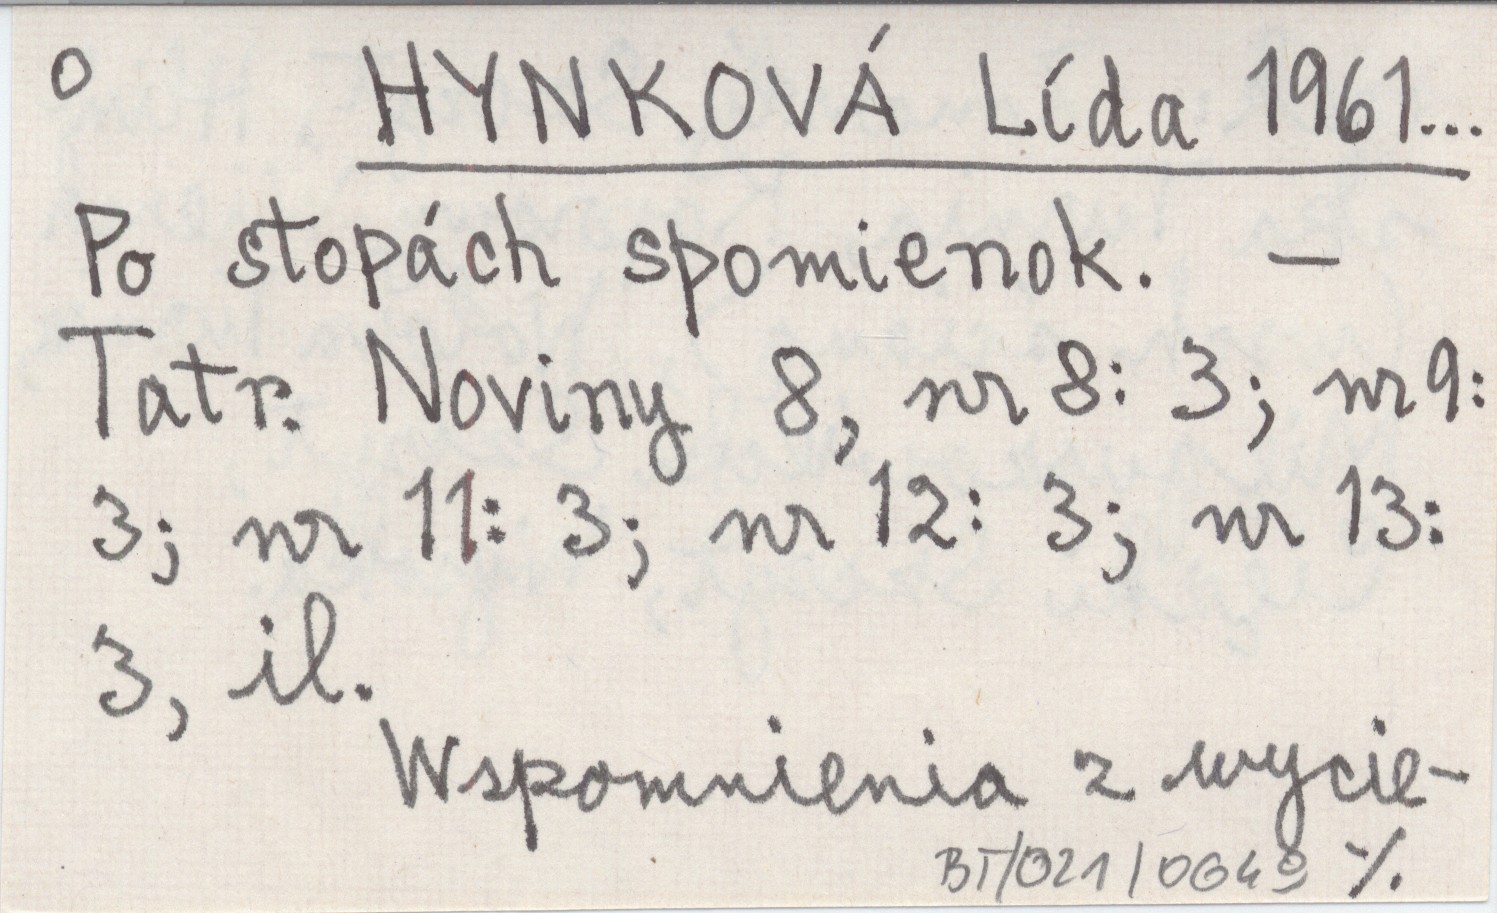 o HYNKOVÁ Lída 1961...
Po stopách spomienok. —
Tatr. Noviny 8, nr 8: 3; nr 9:
3; nr 11: 3; nr 12: 3; nr 13:
3, il.
Wspomnienia z wycie-
BT/021/0649 ·/.